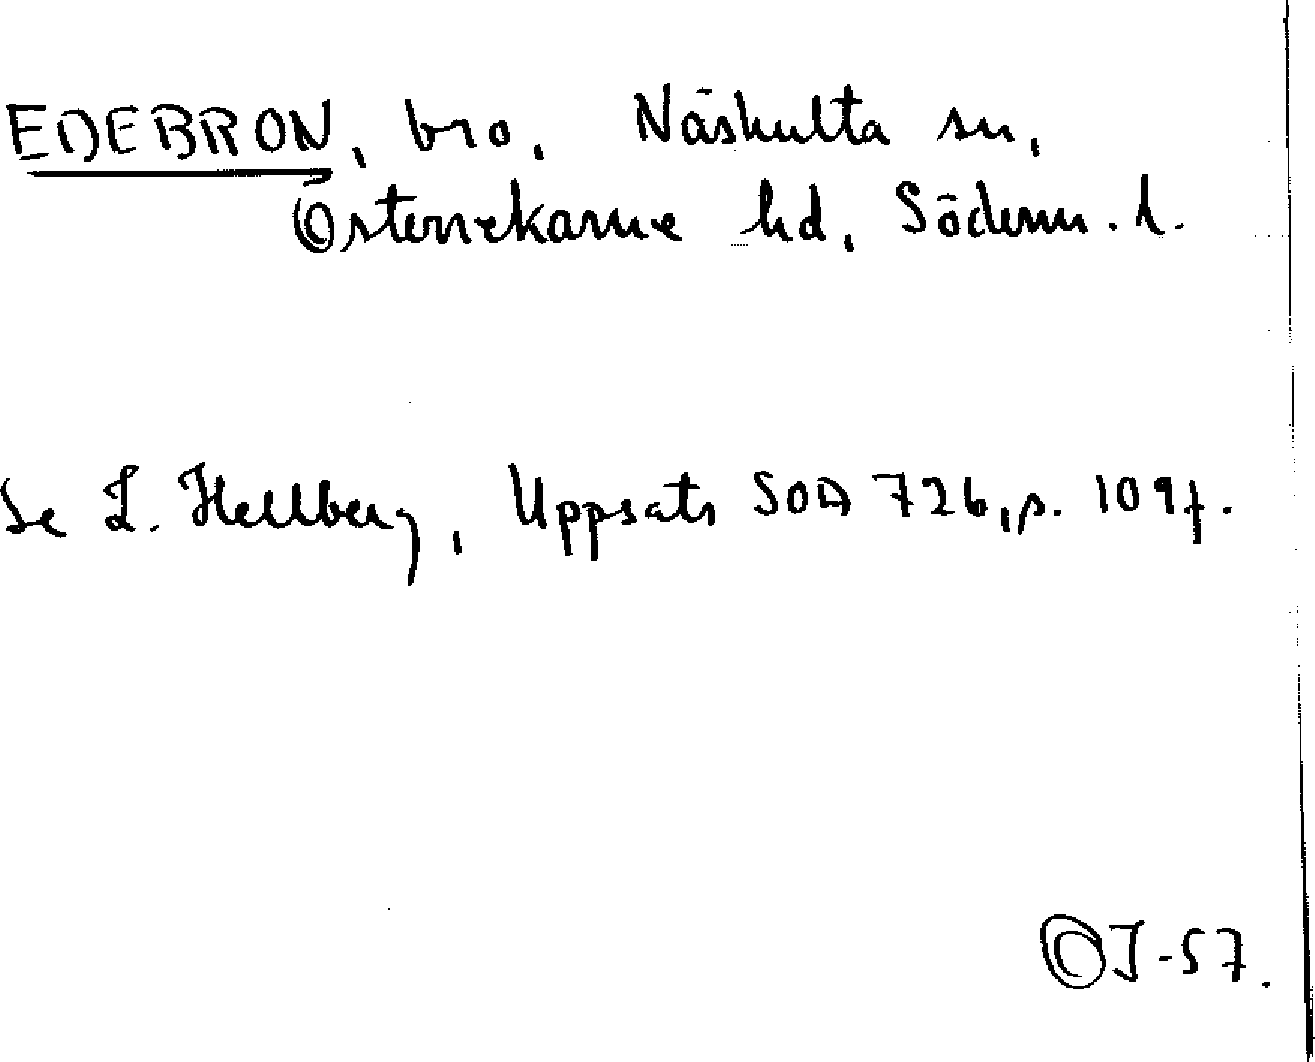 EDEBRON, bro, Näshulta sn,
Österrekarne hd, Söderm. l.
Se L. Hellberg, Uppsats SOA 726, s. 109 f.
OJ-57.